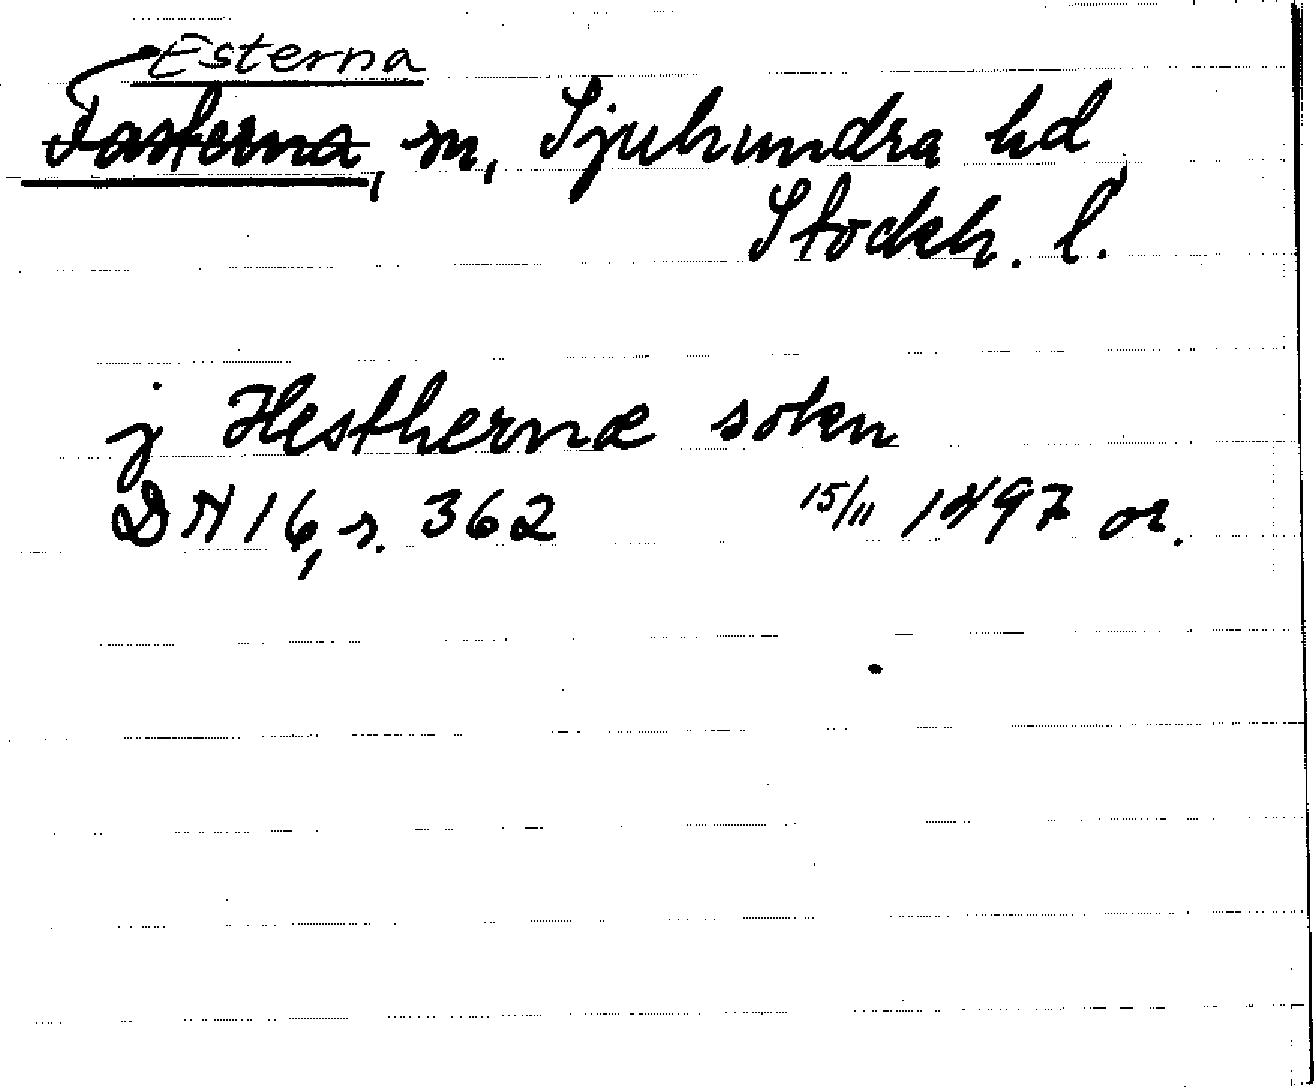 Esterna
Fasterna, sn, Sjuhundra hd,
Stockh. l.
j Hesthernæ sokn
DN 16, s. 362 15/11 1497 or.